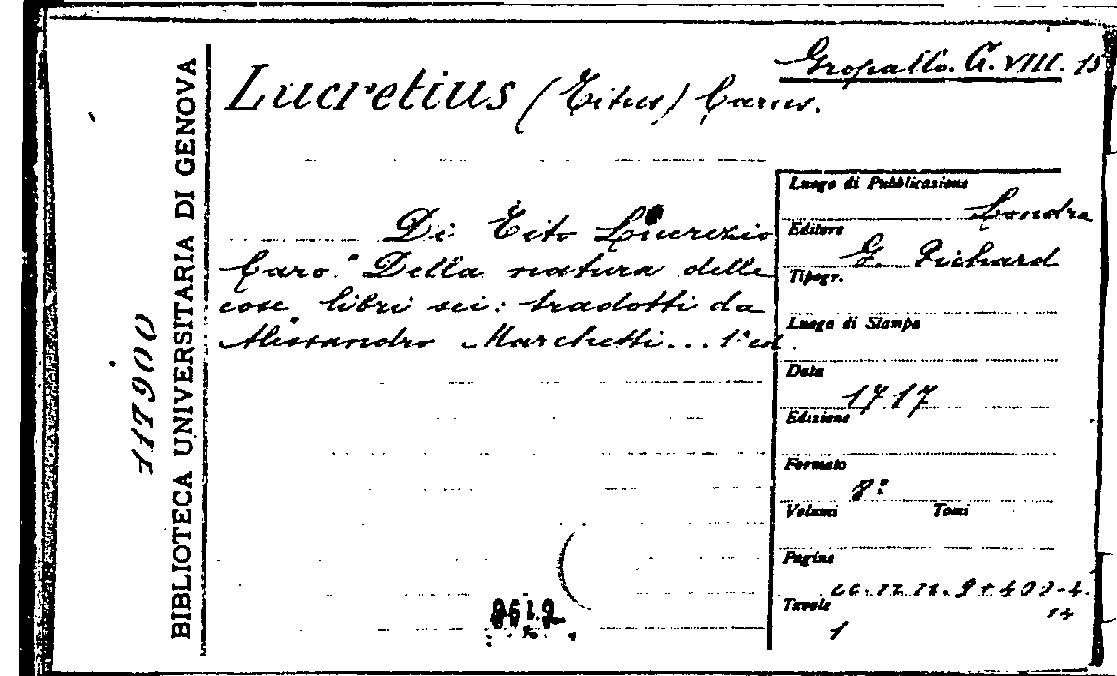 Gropallo. G. VIII. 15
Lucretius (Titus) Carus.
Di Tito Lucrezio
Caro. Della natura delle
cose libri sei: tradotti da
Alessandro Marchetti... 1ª ed.
Luogo di Pubblicazione
Londra
Editore
G. Pichard
Tipogr.
Luogo di Stampa
Data
1717
Edizione
Formato
8º
Volumi Tomi
Pagine
Tavole
1
BIBLIOTECA UNIVERSITARIA DI GENOVA